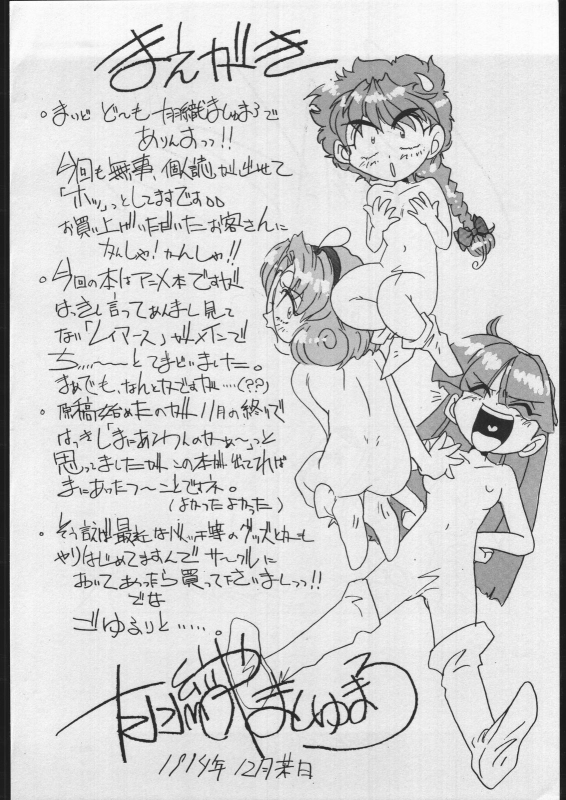 まえがき
。まいど ど〜も 羽織ましゅまろで
ありんすっっ!!
今回も無事、個人誌が出せて
「ホッ」っとしてますです。。
お買い上げいただいたお客さんに
かんしゃ!かんしゃ!!
。今回の本はアニメ本ですが
はっきし言ってあんまし見て
ない「レイアース」がメインで
ち……〜〜とてまどいました。
まぁでも、なんとかですが……(??)
。原稿始めたのが11月の終りで
はっきし「まにあうわんのかぁ〜」っと
思ってましたがこの本が出てれば
まにあったっ〜ことですネ。
(よかったよかった)
。そう言えば最近は 等のグッズとかも
やりはじめてますんでサークルに
おいてあったら買って下さいましっっ!!
でわ
ごゆるりと……。
羽織ましゅまろ
1994年12月某日